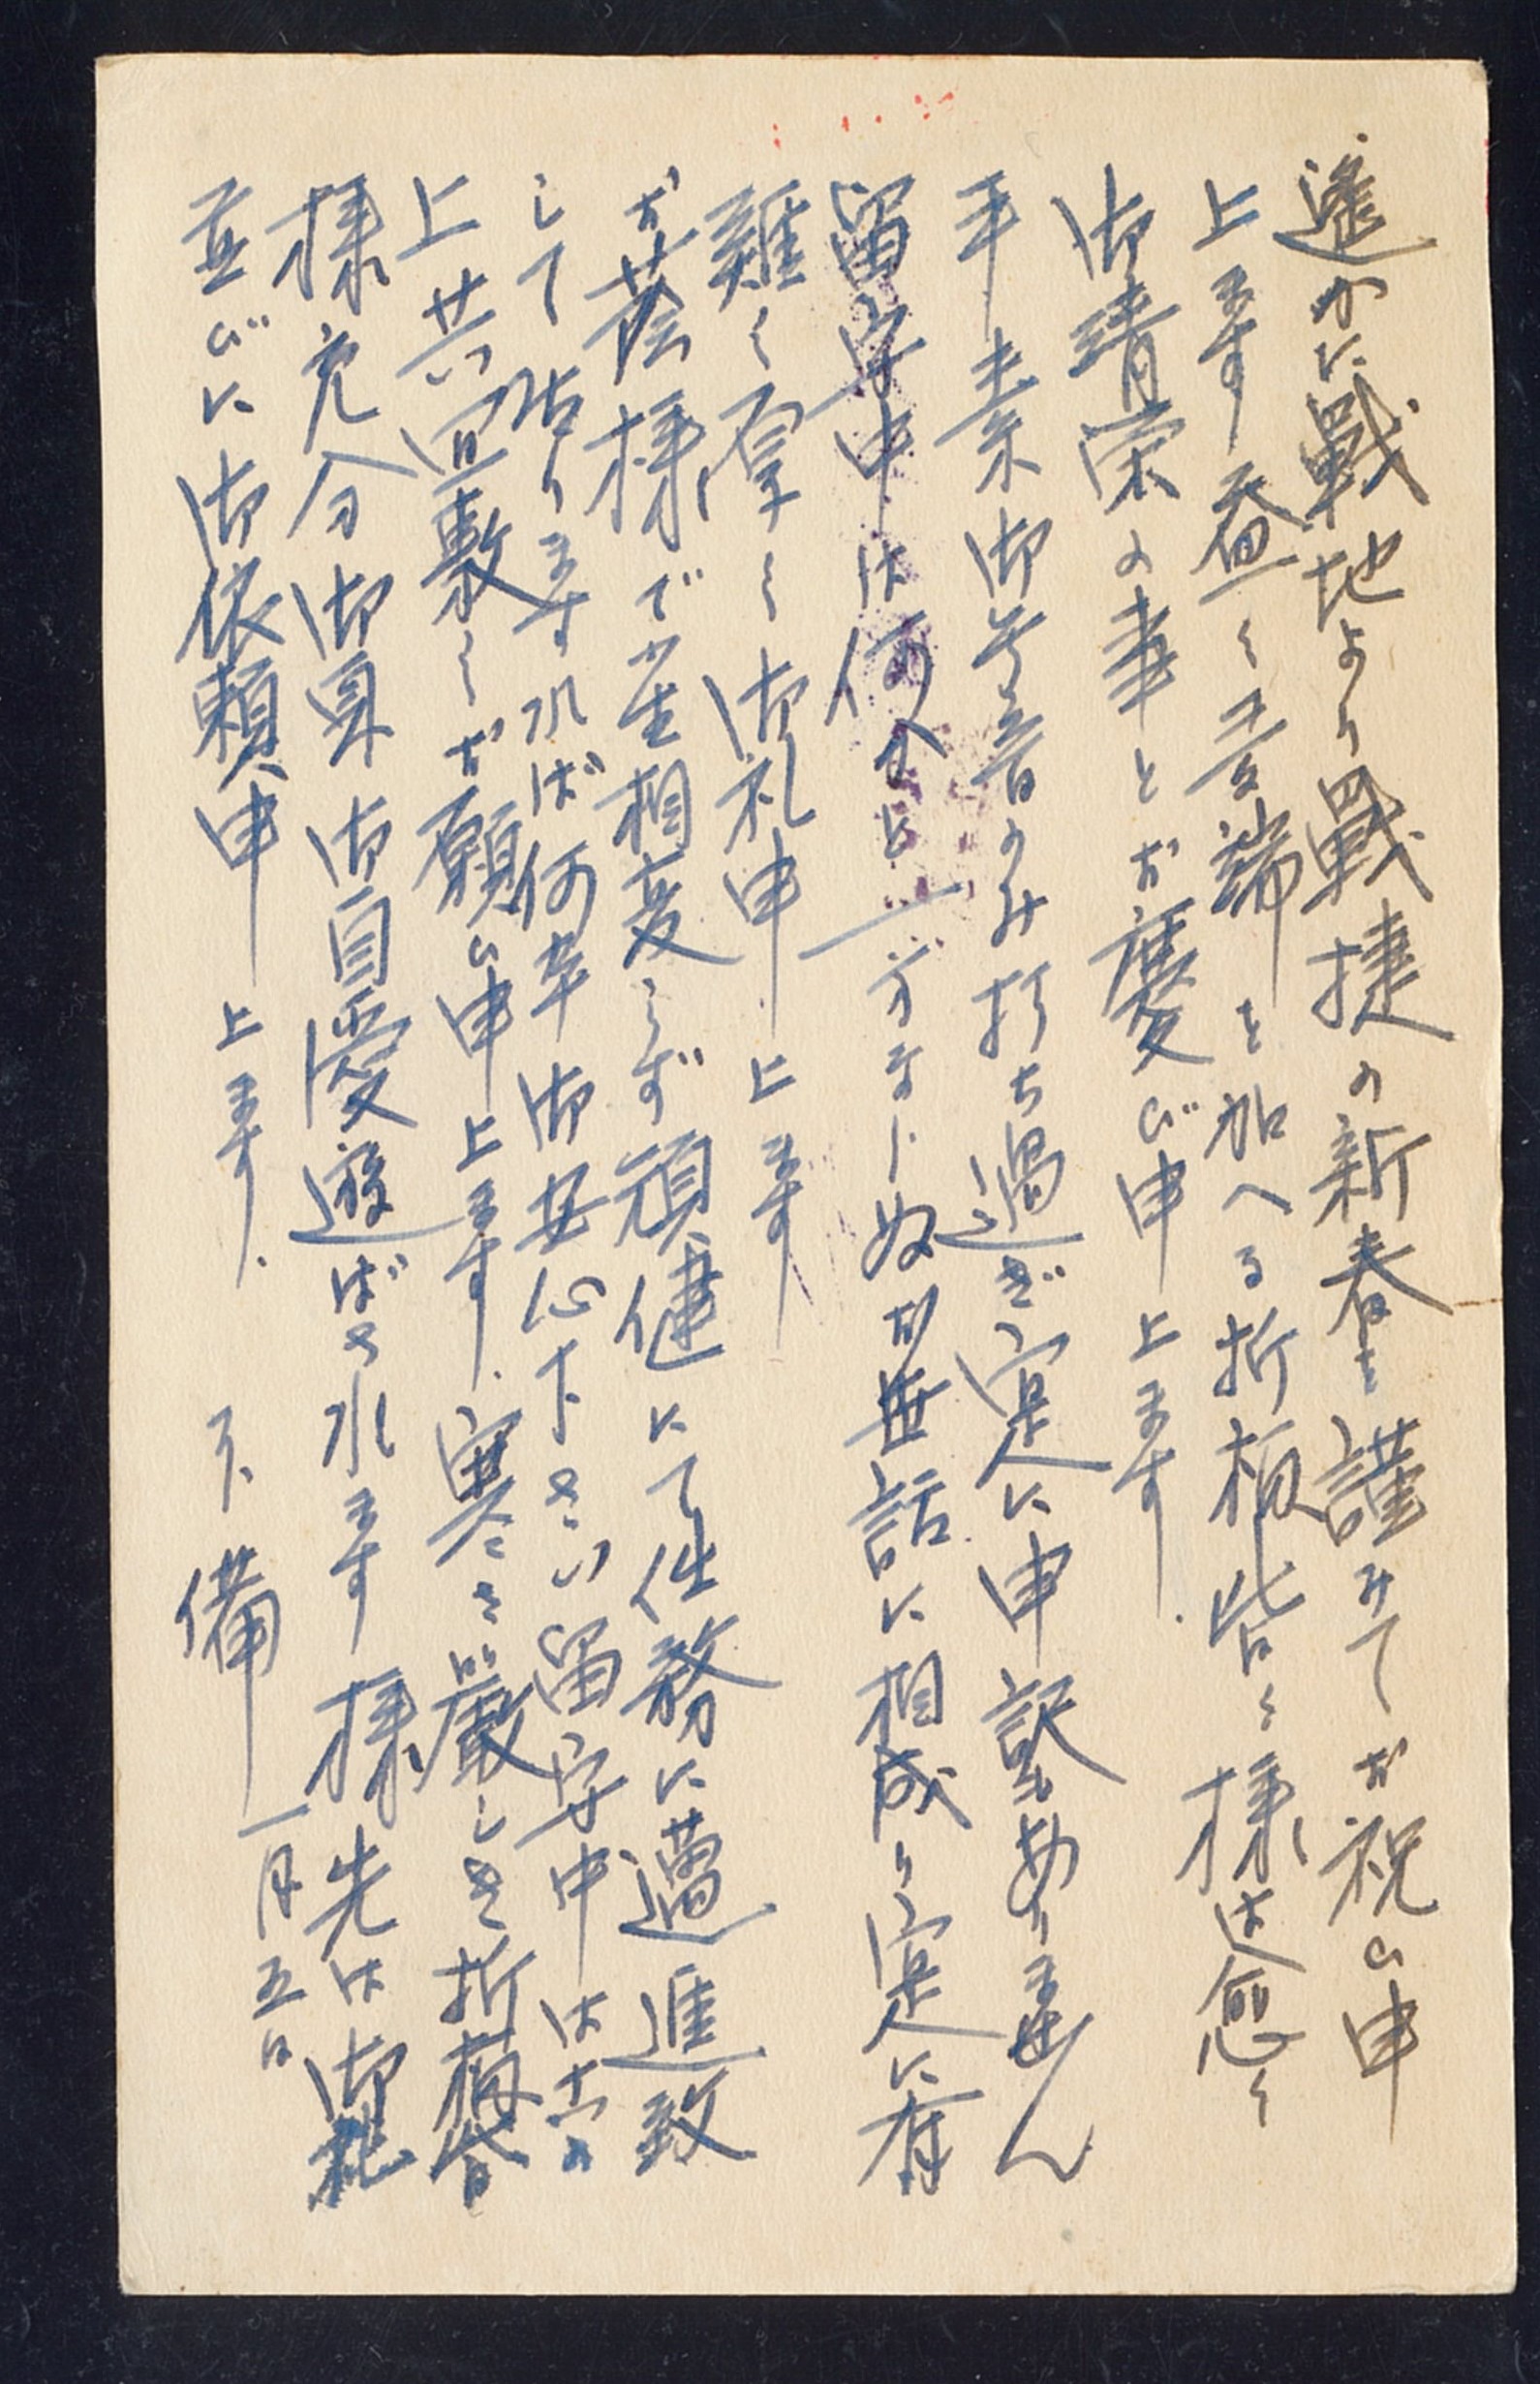 遙かに戦地より戦捷の新春を謹みてお祝ひ申
上ます 益々多端を加へる折柄皆々様は愈々
御清栄の事とお慶び申上ます.
平素御無音のみ打ち過ぎ寔に申訳ありません
留守中は何かと一方ならぬお世話に相成り寔に有
難く厚く御礼申上ます
お蔭様で小生相変らず頑健にて任務に邁進致
して居りますれば何卒御安心下さい 留守中は
上共宜敷くお願ひ申上ます. 寒さ厳しき折柄皆
様充分御身御自愛遊ばされます様先は御礼
並びに御依頼申上ます.
不備
一月五日